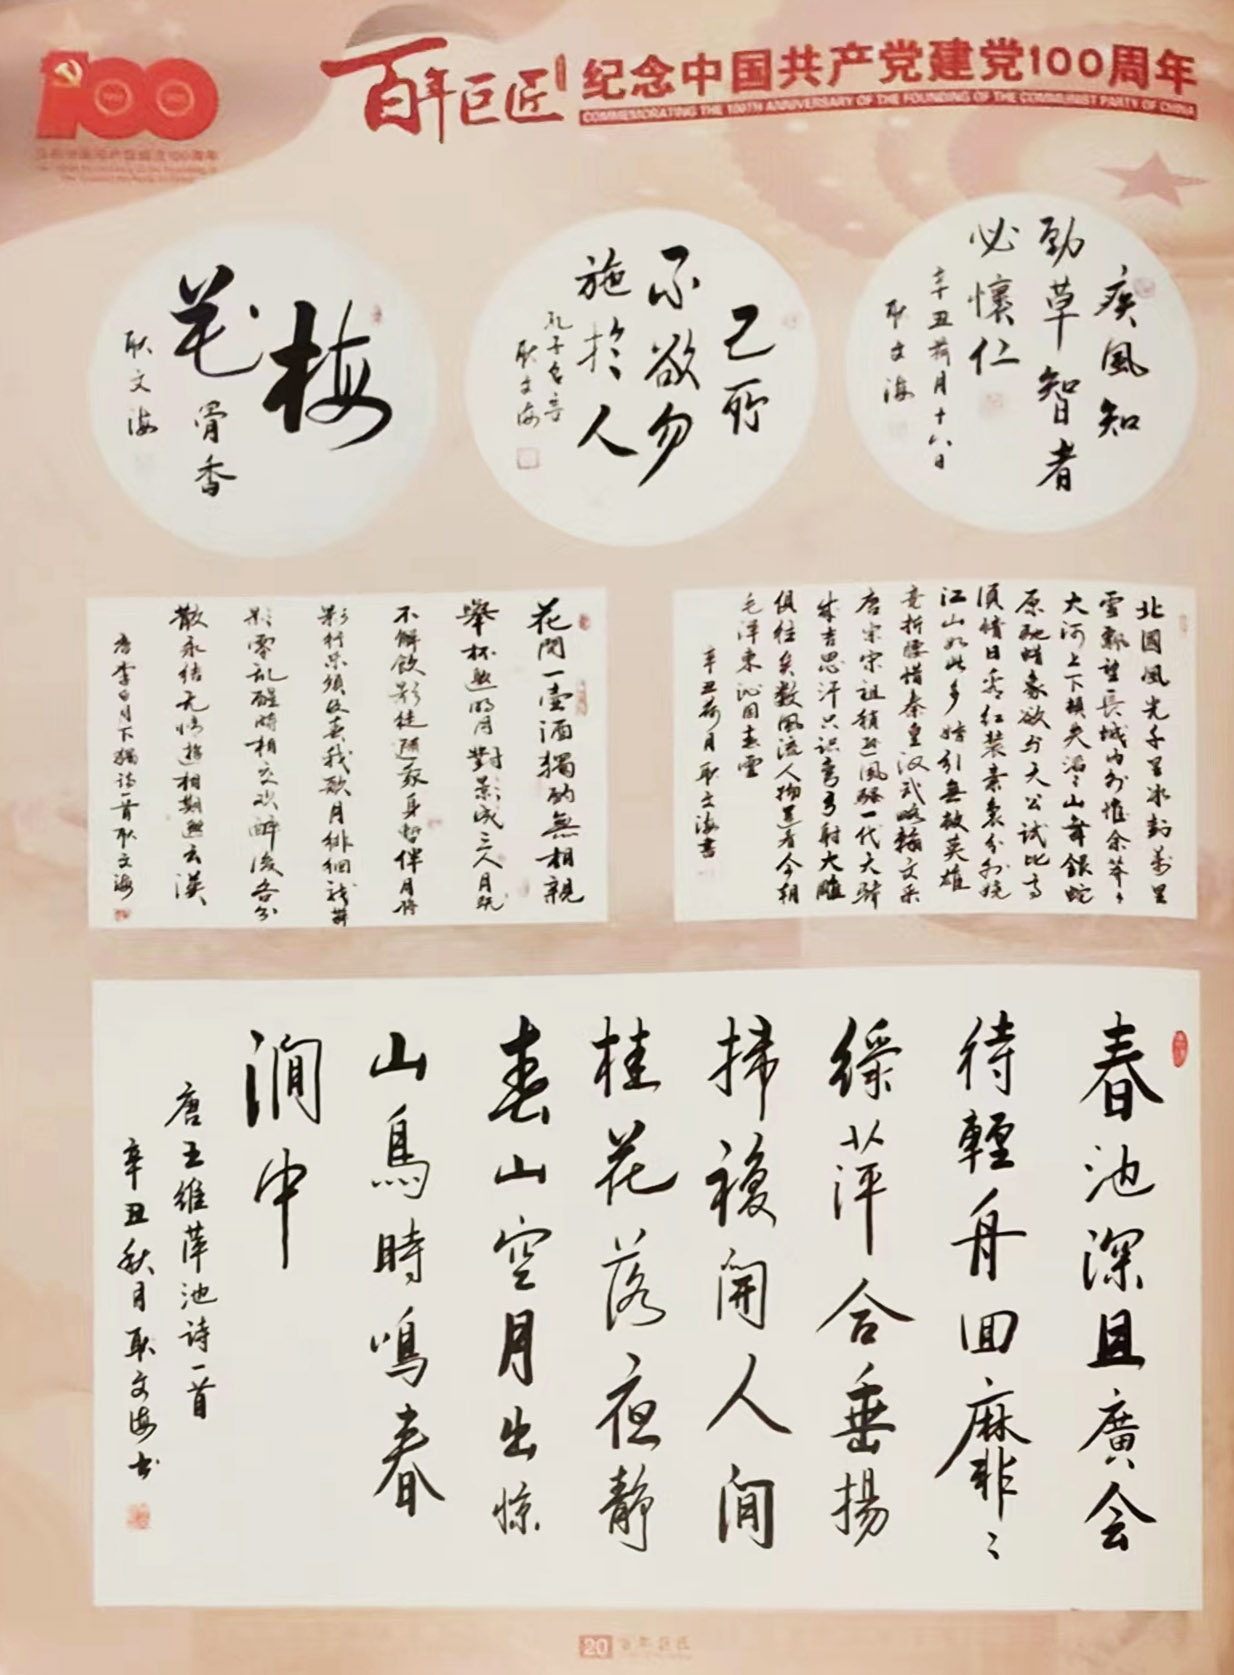 100
百年巨匠
纪念中国共产党建党100周年
COMMEMORATING THE 100TH ANNIVERSARY OF THE FOUNDING OF THE COMMUNIST PARTY OF CHINA
疾風知
勁草智者
必懷仁
辛丑荷月十六日
耿文海
己所
不欲勿
施於人
孔子名言
耿文海
梅
花骨香
耿文海
北國風光千里冰封萬里
雪飄望長城内外惟余莽々
大河上下頓失滔々山舞銀蛇
原馳蜡象欲与天公試比高
須晴日看红装素裹分外妖
江山如此多娇引無数英雄
竞折腰惜秦皇汉武略輸文采
唐宗宋祖稍逊風騷一代天骄
成吉思汗只识弯弓射大雕
俱往矣数風流人物還看今朝
毛澤東沁园春雪
辛丑荷月耿文海書
花間一壺酒獨酌無相親
舉杯邀明月對影成三人月既
不解飲影徒隨我身暫伴月将
影行樂須及春我歌月徘徊我舞
影零乱醒時相交欢醉後各分
散永结无情遊相期邈云漢
唐李白月下獨酌一首耿文海
春池深且廣会
待輕舟回靡靡々
綠萍合垂揚
掃複開人间
桂花落夜静
春山空月出惊
山鳥時鳴春
澗中
唐王維萍池诗一首
辛丑秋月耿文海书
20 百年巨匠